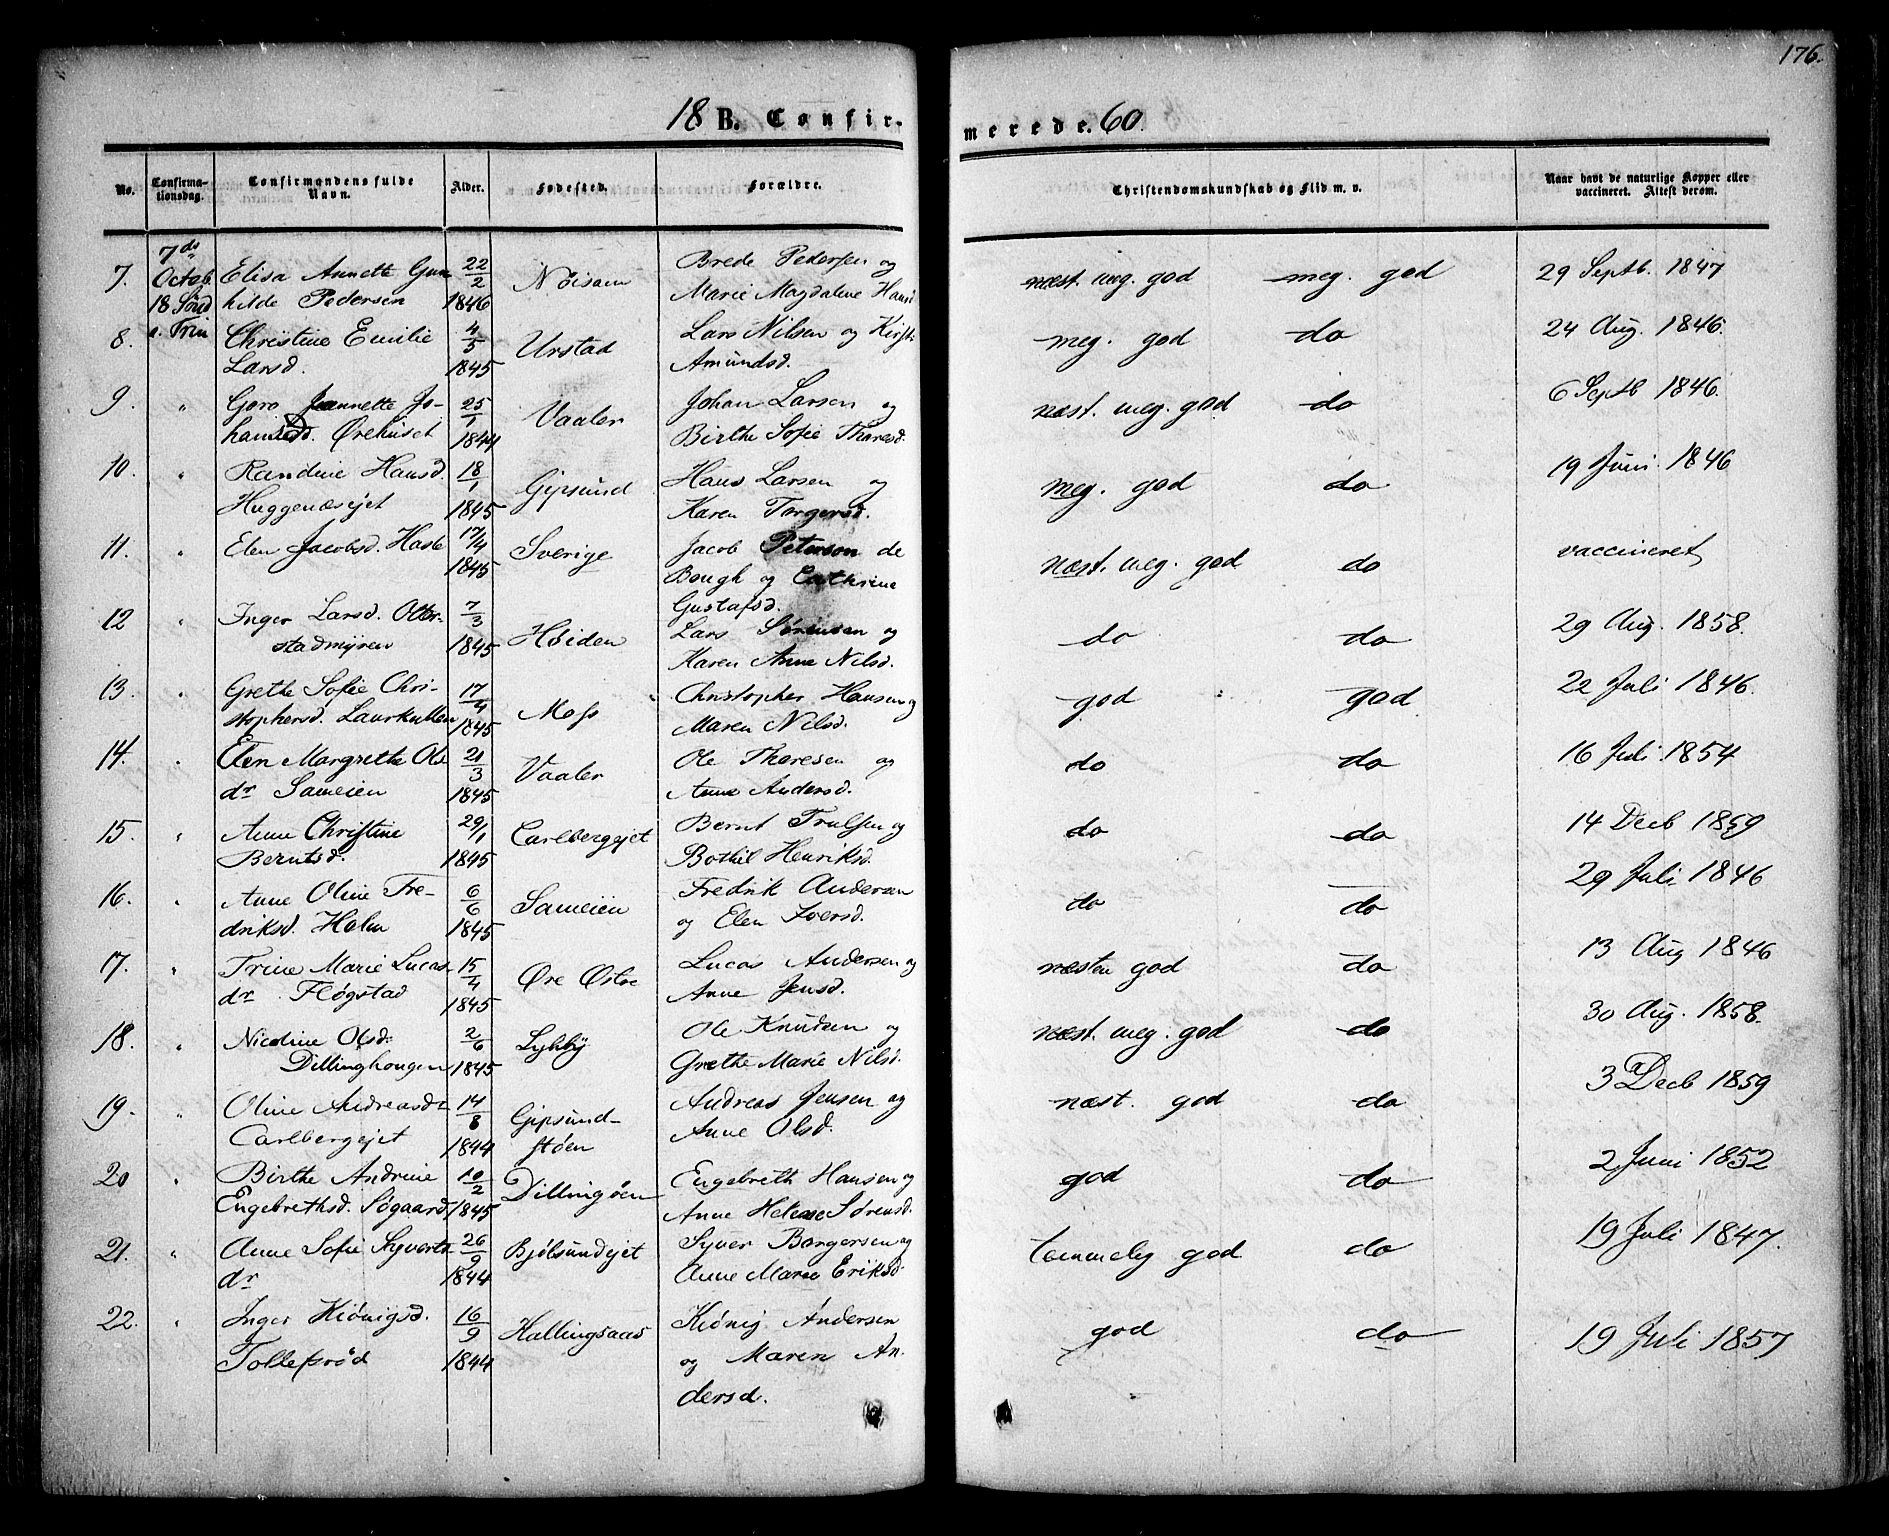 176.
18 B. Confirmerede. 60.
No. Confirmationsdag. Confirmandens fulde Navn. Alder. Fødested. Forældre. Christendomskundskab og Flid m. v. Naar havt de naturlige Kopper eller vaccineret. Attest derom.
7. 7de Octob. 18 Sønd e. Trin Elisa Annette Gunhilde Pedersen 22/2 1846 Nøisom Brede Pedersen og Marie Magdalene Hansd næst. meg. god meg. god 29 Septb. 1847
8. Christine Emilie Larsd. 4/5 1845 Urstad Lars Nilsen og Kirsti Amundsd. meg. god do 24 Aug. 1846.
9. " Goro Jeannette Johansd. Ørehuset 25/1 1844 Vaaler Johan Larsen og Birthe Sofie Thoresd. næst. meg. god do 6 Septb 1846.
10. " Randine Hansd. Huggenæsejet 18/1 1845 Gipsund Hans Larsen og Karen Torgersd. meg. god do 19 Juni. 1846
11. " Elen Jacobsd. Hasle 17/4 1845 Sverige Jacob Peterson de Bough og Cathrine Gustafsd. næst. meg. god do vaccineret
12 " Inger Larsd. Otterstadmyren 7/3 1845 Høiden Lars Sørensen og Karen Anne Nilsd. do do 29 Aug. 1858.
13. " Grethe Sofie Christophersd. Laurkullen 17/4 1845 Moss Christopher Hansen og Maren Nilsd. god god 22 Juli 1846.
14. " Elen Margrethe Olsdr Sameien 21/3 1845 Vaaler Ole Thoresen og Anne Andersd. do do 16 Juli 1854
15. " Anne Christine Berntsd. 29/1 1845 Carlbergejet Bernt Trulsen og Bothil Henriksd. do do 14 Decb 1859
16. " Anne Oline Fredriksd. Holm 6/6 1845 Sameien Fredrik Andersen og Elen Iversd. do do 29 Juli 1846
17. " Trine Marie Lucasdr Fløgstad 15/4 1845 Øre Østre Lucas Andersen og Anne Jensd. næsten god do 13 Aug 1846
18. " Nicoline Olsd. Dillinghougen 2/6 1845 Lykby Ole Knudsen og Grethe Marie Nilsd. næst. meg. god do 30 Aug. 1858.
19. " Oline Andreasdr Carlbergejet 14/8 1844 Gipsundstøen Andreas Jensen og Anne Olsd. næst. god do 3 Decb 1859
20 " Birthe Andrine Engebrethsd. Søgaard 10/2 1845 Dillingøen Engebreth Hansen og Anne Helene Sørensd. god do 2 Juni 1852
21. " Anne Sofie Syvertsdr 26/9 1844 Bjølsundejet Syver Borgersen og Anne Marie Eriksd. temmelig god do 19 Juli 1847.
22. " Inger Kiønigsd. Tollefsrød 16/9 1844 Hallingsaas Kiønig Andersen og Maren Andersd. god do 19 Juli 1857